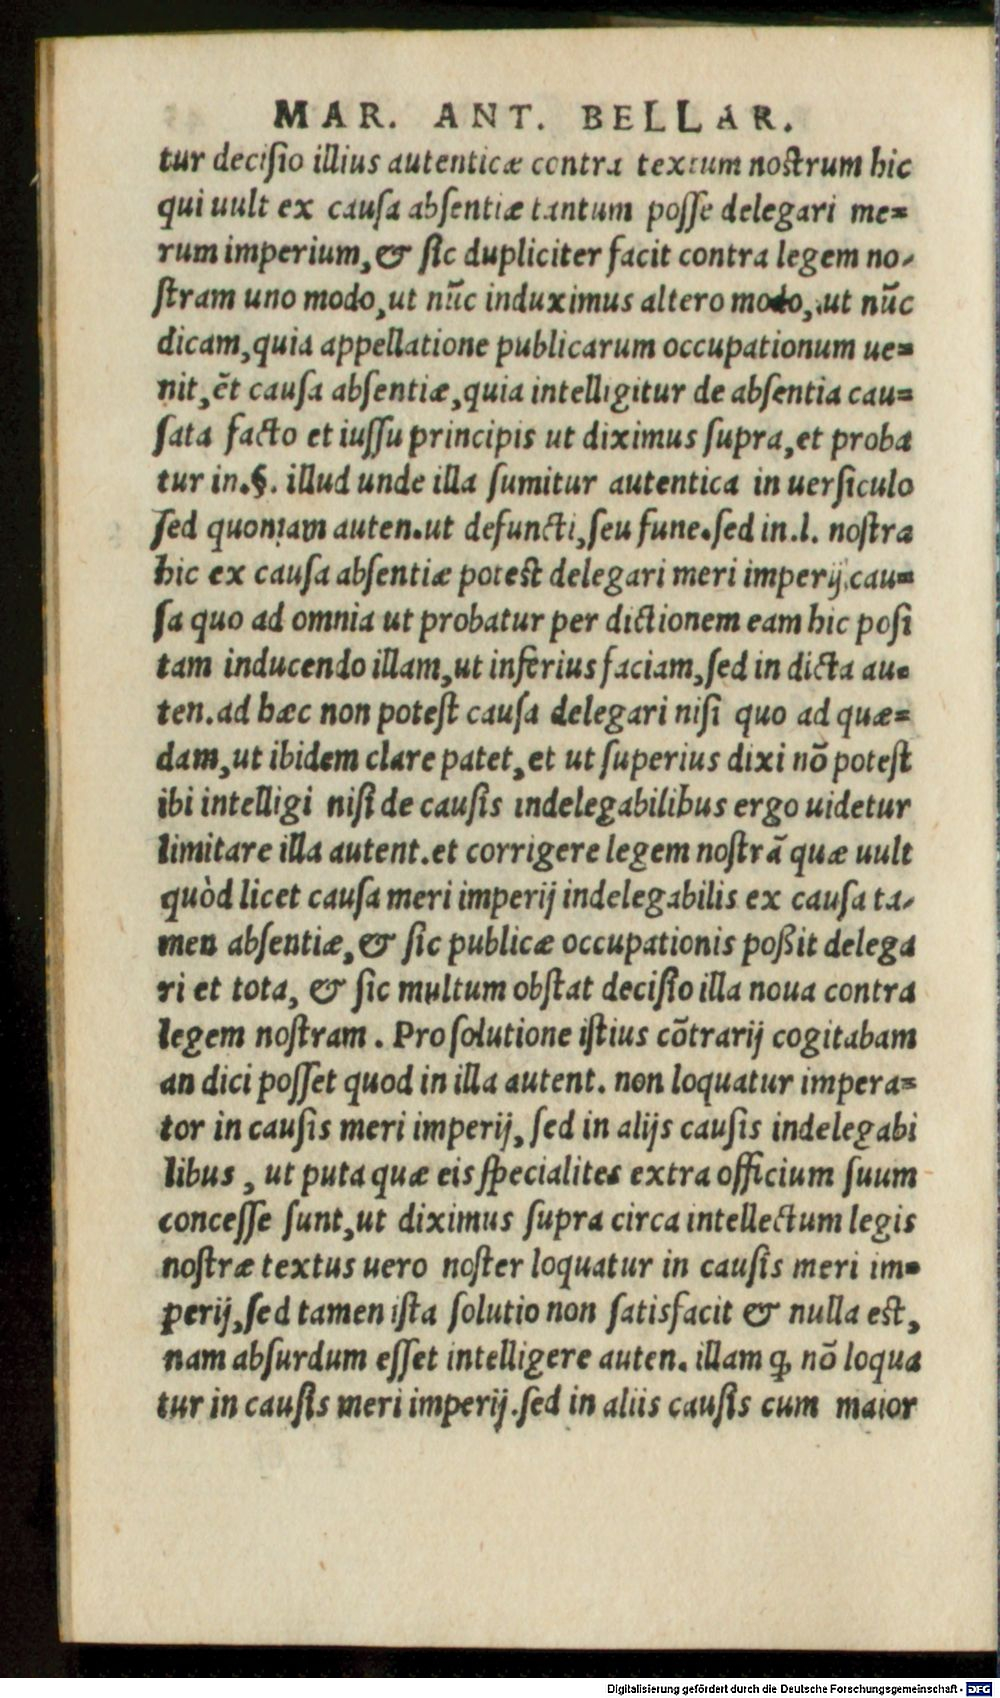 MAR. ANT. BELLAR.
tur deciſio illius autenticæ contra textum noſtrum hic
qui uult ex cauſa abſentiæ tantum poſſe delegari me=
rum imperium, & ſic dupliciter facit contra legem no-
ſtram uno modo, ut nũc induximus altero modo, ut nũc
dicam, quia appellatione publicarum occupationum ue=
nit, ẽt cauſa abſentiæ, quia intelligitur de abſentia cau=
ſata facto et iuſſu principis ut diximus ſupra, et proba
tur in.§. illud unde illa ſumitur autentica in uerſiculo
ſed quoniam auten.ut defuncti, ſeu fune.ſed in.l. noſtra
hic ex cauſa abſentiæ poteſt delegari meri imperij cau=
ſa quo ad omnia ut probatur per dictionem eam hic poſi
tam inducendo illam, ut inferius faciam, ſed in dicta au=
ten.ad hæc non poteſt cauſa delegari niſi quo ad quæ=
dam, ut ibidem clare patet, et ut ſuperius dixi nõ poteſt
ibi intelligi niſi de cauſis indelegabilibus ergo uidetur
limitare illa autent.et corrigere legem noſtrã quæ uult
quòd licet cauſa meri imperij indelegabilis ex cauſa ta-
men abſentiæ, & ſic publicæ occupationis poßit delega
ri et tota, & ſic multum obſtat deciſio illa noua contra
legem noſtram. Pro ſolutione iſtius cõtrarij cogitabam
an dici poſſet quod in illa autent. non loquatur impera=
tor in cauſis meri imperij, ſed in alijs cauſis indelegabi
libus, ut puta quæ eis ſpecialites extra officium ſuum
conceſſe ſunt, ut diximus ſupra circa intellectum legis
noſtræ textus uero noſter loquatur in cauſis meri im=
perij, ſed tamen iſta ſolutio non ſatisfacit & nulla eſt,
nam abſurdum eſſet intelligere auten. illam ꝙ nõ loqua
tur in cauſis meri imperij.ſed in aliis cauſis cum maior
Digitalisierung gefördert durch die Deutsche Forschungsgemeinschaft - DFG